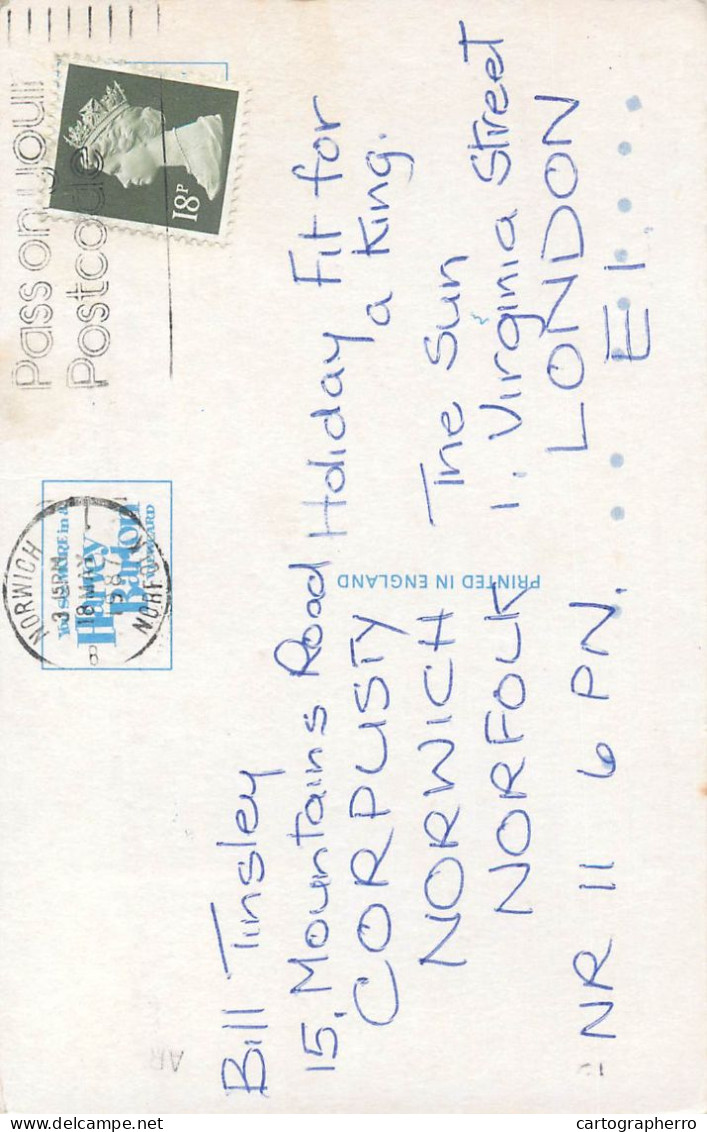 Pass on your
Postcode
18P
NORWICH
3 15PM
18 MAY
198
NORFOLK
8
You SEE MORE in a
Harvey
Barton
Bill Tinsley
15, Mountains Road
CORPUSTY
NORWICH
NORFOLK
NR 11 6 PN.
PRINTED IN ENGLAND
Holiday Fit for
a King.
The Sun
1, Virginia Street
LONDON
E1.
AR
Delcampe.net
cartographerro